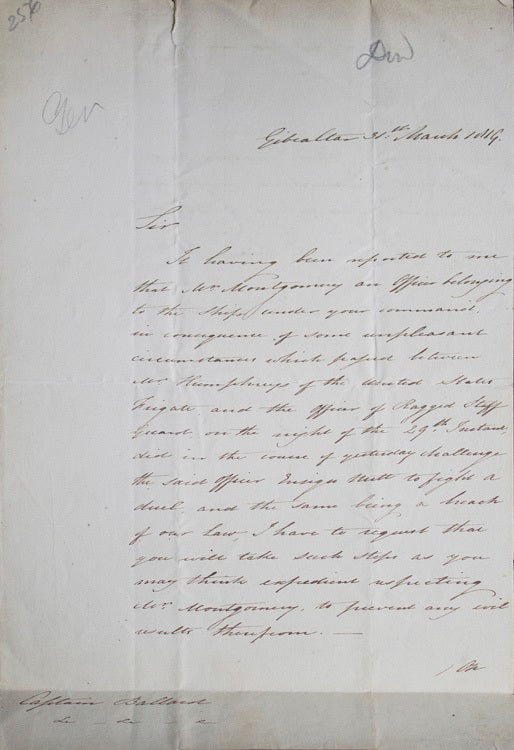 256
Gen
Gibraltar 31.st March 1819.
Sir
It having been reported to me
that Mr. Montgomery an Officer belonging
to the Ships under your command,
in consequence of some unpleasant
circumstances which passed between
Mr. Humphreys of the United States
Frigate, and the Officer of Ragged Staff
Guard, on the night of the 29th Instant,
did in the course of yesterday challenge
the said Officer Ensign to fight a
duel, and the same being a breach
of our Law, I have to request that
you will take such steps as you
may think expedient respecting
Mr. Montgomery, to prevent any evil
results therefrom. —
/ On
Captain Ballard
&c — &c — &c